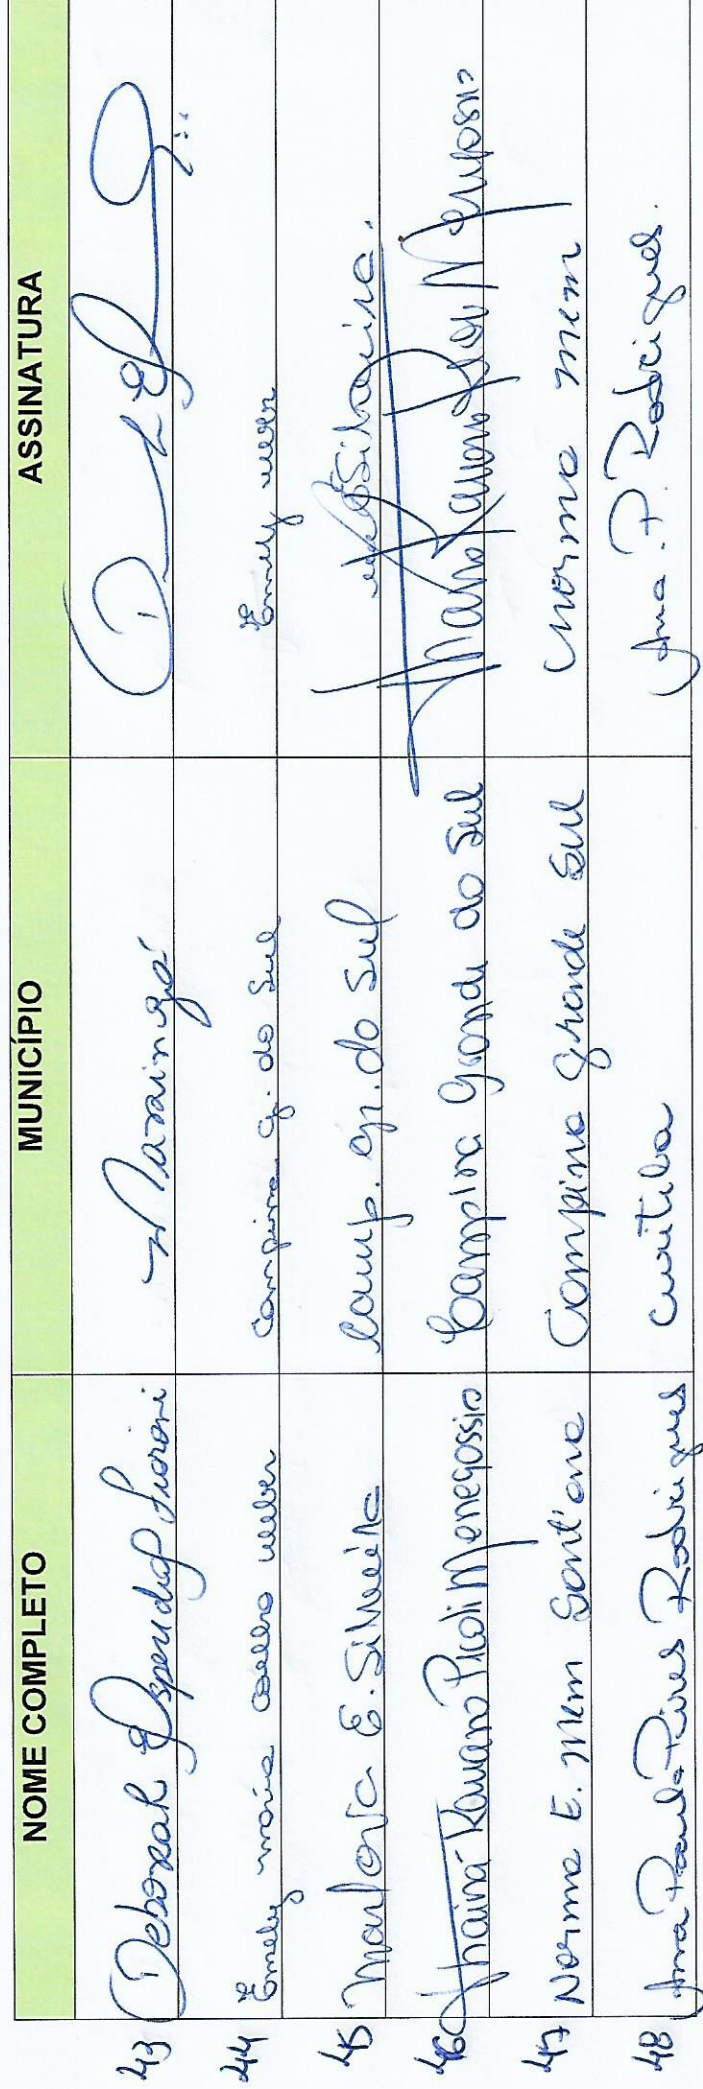 NOME COMPLETO MUNICÍPIO ASSINATURA
43 Deborah Esperidião Fiorori Maringá
44 Emely maria coelho weber Campina G. do Sul Emely weber
45 Marlova E. Silveira Camp. Gr. do Sul Silveira.
46 Thainá Ravano Picoli Menegossio Campina Grande do Sul
47 Norma E. Mem Sant'ana Campina Grande Sul Norma Mem
48 Ana Paula Pires Rodrigues Curitiba Ana. P. Rodrigues.